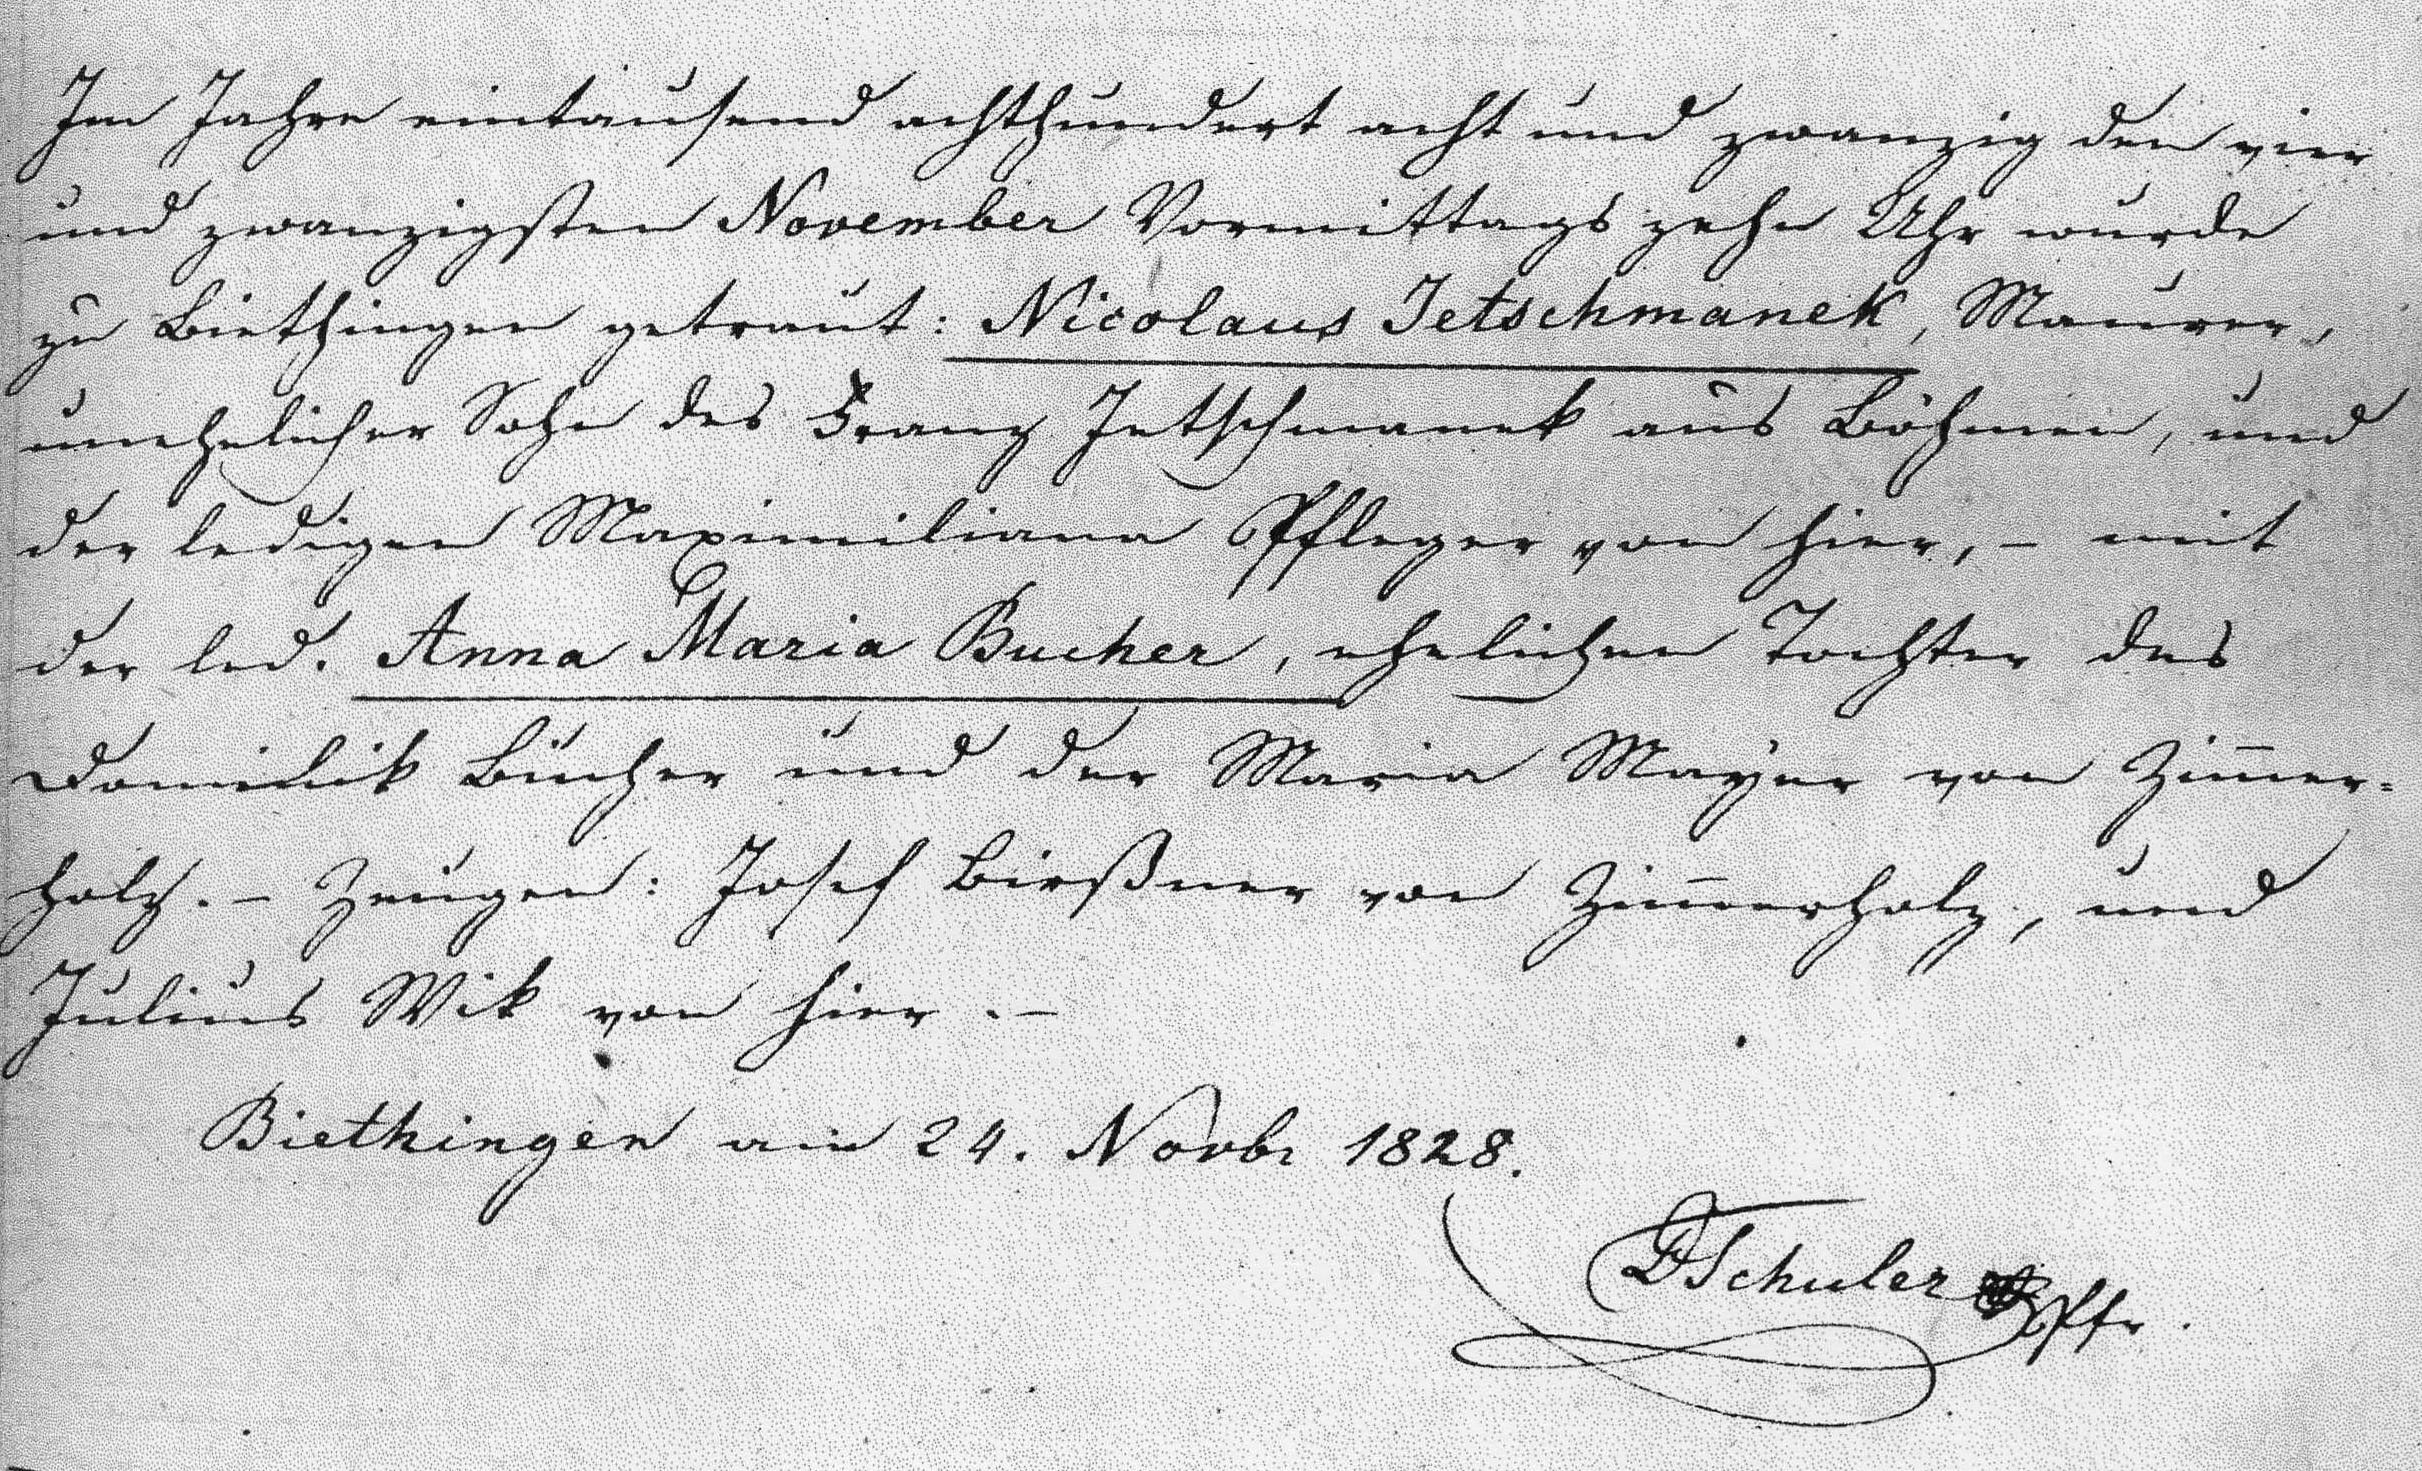 Im Jahre eintausend achthundert acht und zwanzig den vier
und zwanzigsten November Vormittags zehn Uhr wurde
zu Biethingen getraut: Nicolaus Jetschmanek, Maurer,
unehelicher Sohn des Franz Jetschmanek aus Böhmen, und
der ledigen Maximiliana Pfleger von hier, – mit
der led. Anna Maria Bucher, ehelichen Tochter des
Dominik Bucher und der Maria Mayer von Zim̅er=
holz. – Zeugen: Josef Birßner von Zim̅erholz, und
Julius Wik von hier. –
Biethingen am 24. Novbr 1828.
Schuler Pfr.